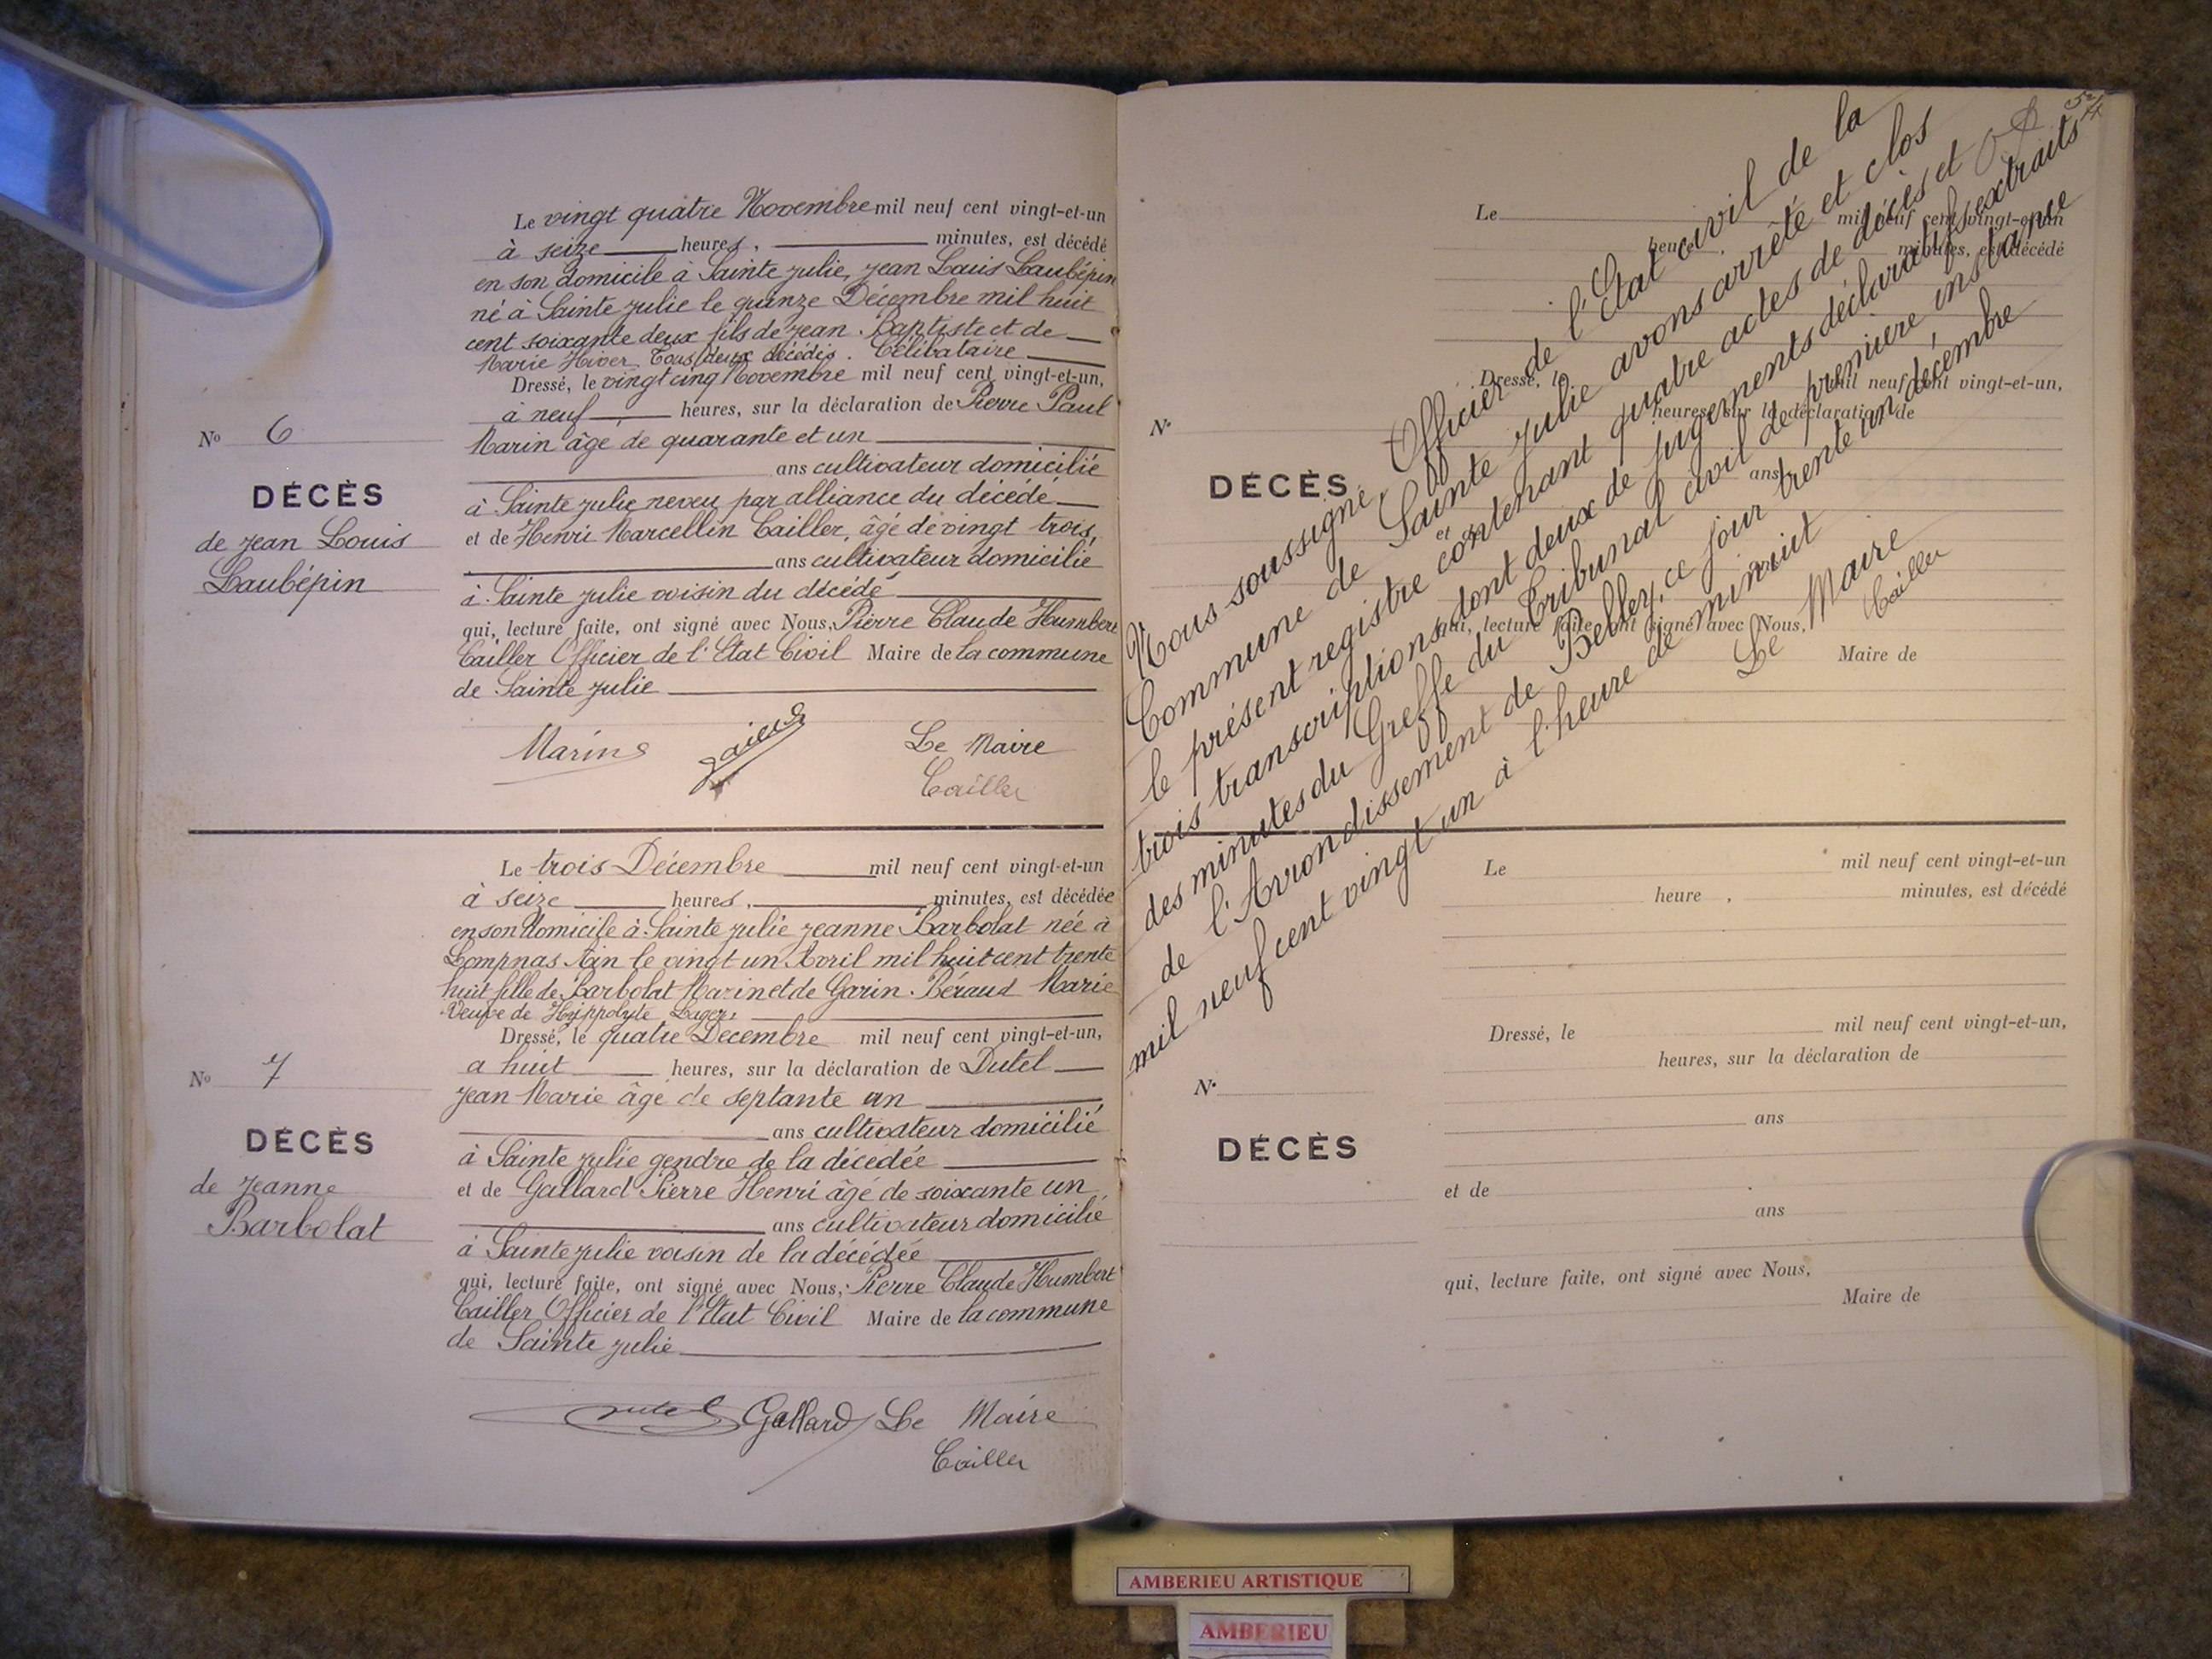 Le vingt quatre Novembre mil neuf cent vingt-et-un
à seize heures, minutes, est décédé
en son domicile à Sainte Julie, Jean Louis Laubépin
né à Sainte Julie le quinze Décembre mil huit
cent soixante deux fils de Jean Baptiste et de
Marie Hiver. Tous deux décédés. Célibataire
Dressé, le vingt cinq Novembre mil neuf cent vingt-et-un,
à neuf heures, sur la déclaration de Pierre Paul
Marin âgé de quarante et un
ans cultivateur domicilié
à Sainte Julie neveu par alliance du décédé
et de Henri Marcellin Cailler, âgé de vingt trois,
ans cultivateur domicilié
à Sainte Julie voisin du décédé
qui, lecture faite, ont signé avec Nous, Pierre Claude Humbert
Cailler Officier de l'Etat Civil Maire de la commune
de Sainte Julie
No 6
DÉCÈS
de Jean Louis
Laubépin
Marin Le Maire
Cailler
Le trois Décembre mil neuf cent vingt-et-un
à seize heures, minutes, est décédée
en son domicile à Sainte Julie Jeanne Barbolat née à
Lompnas Ain le vingt un Avril mil huit cent trente
huit fille de Barbolat Marin et de Garin-Béraud Marie
Veuve de Hyppolyte
Dressé, le quatre Décembre mil neuf cent vingt-et-un,
a huit heures, sur la déclaration de Dutel
Jean Marie âgé de septante un
ans cultivateur domicilié
à Sainte Julie gendre de la décédée
et de Gallard Pierre Henri âgé de soixante un
ans cultivateur domicilié
à Sainte Julie voisin de la décédée
qui, lecture faite, ont signé avec Nous, Pierre Claude Humbert
Cailler Officier de l'Etat Civil Maire de la commune
de Sainte Julie
No 7
DÉCÈS
de Jeanne
Barbolat
Dutel Gallard Le Maire
Cailler
Nous soussigné, Officier de l'Etat civil de la
Commune de Sainte Julie avons arrêté et clos
le présent registre contenant quatre actes de décès et
trois transcriptions dont deux de jugements déclaratifs et extraits
des minutes du Greffe du Tribunal civil de première instance
de l'Arrondissement de Belley, ce jour trente un décembre
mil neuf cent vingt un à l'heure de minuit
Le Maire
Cailler
Le mil neuf cent vingt-et-un
heure, minutes, est décédé
Dressé, le mil neuf cent vingt-et-un,
heures, sur la déclaration de
No
DÉCÈS
ans
et de
ans
qui, lecture faite, ont signé avec Nous,
Maire de
Le mil neuf cent vingt-et-un
heure, minutes, est décédé
Dressé, le mil neuf cent vingt-et-un,
heures, sur la déclaration de
No
ans
DÉCÈS
et de
ans
qui, lecture faite, ont signé avec Nous,
Maire de
AMBERIEU ARTISTIQUE
AMBERIEU